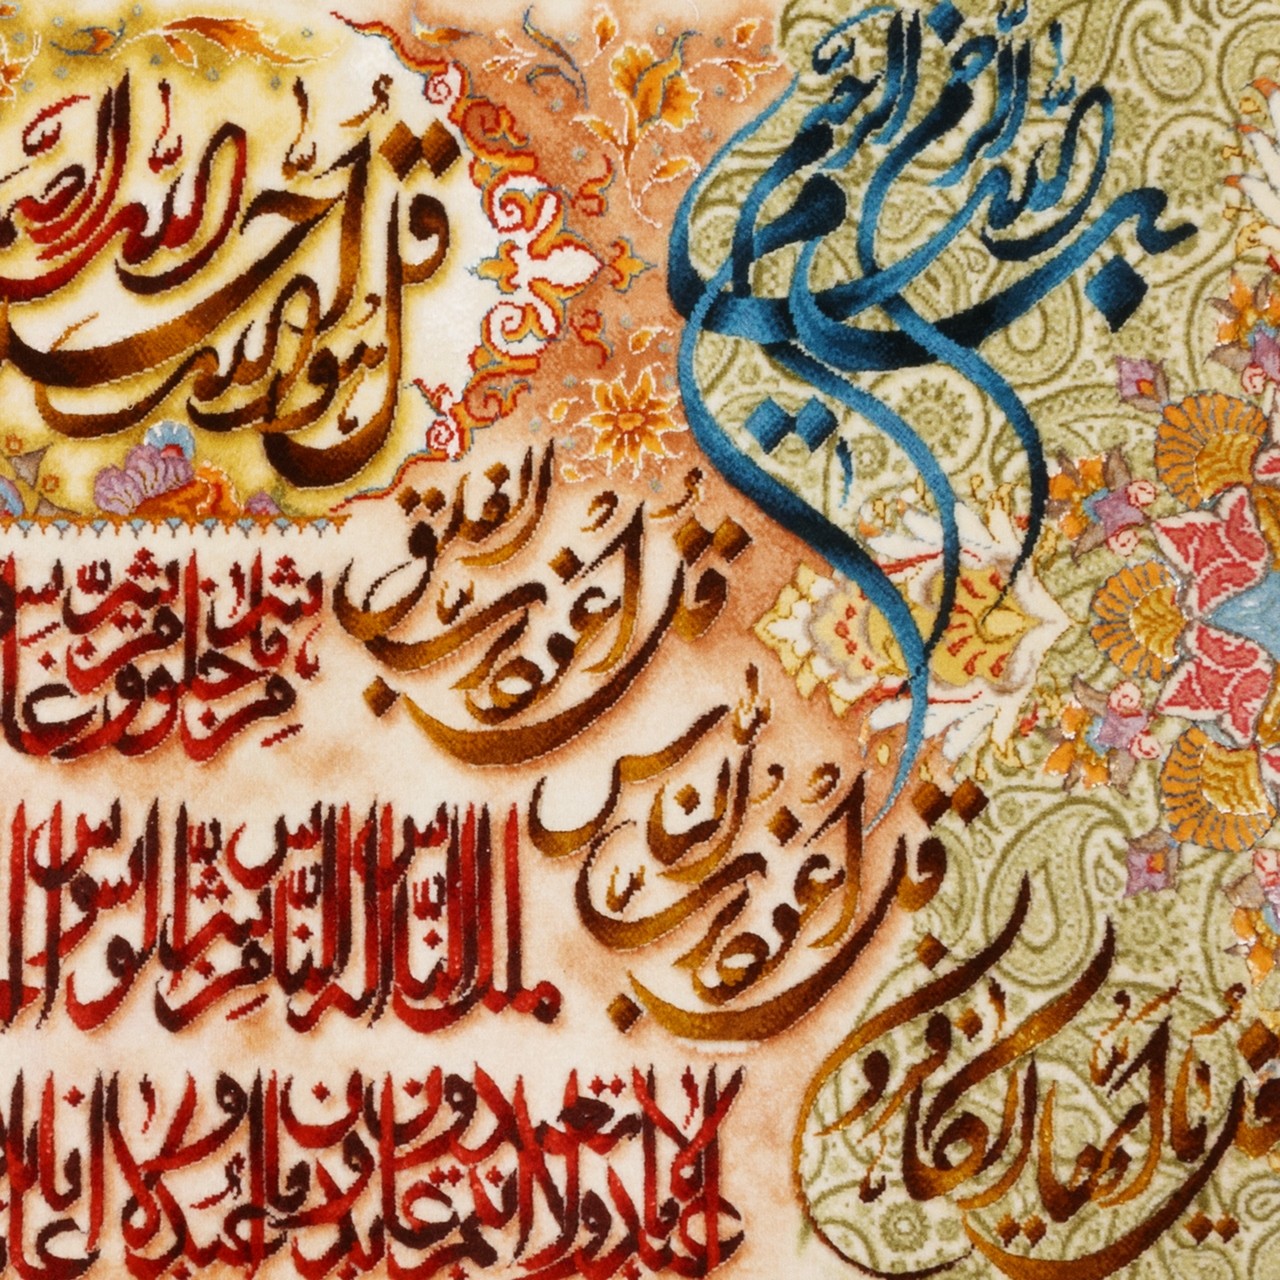 بسم الله الرحمن الرحیم
قل هو الله احد الله الصمد
قل اعوذ برب الفلق
من شر ما خلق و من شر غاسق
قل اعوذ برب الناس
ملك الناس اله الناس من شر الوسواس
قل یا ایها الکافرون
لا اعبد ما تعبدون و لا انتم عابدون ما اعبد و لا انا عابد